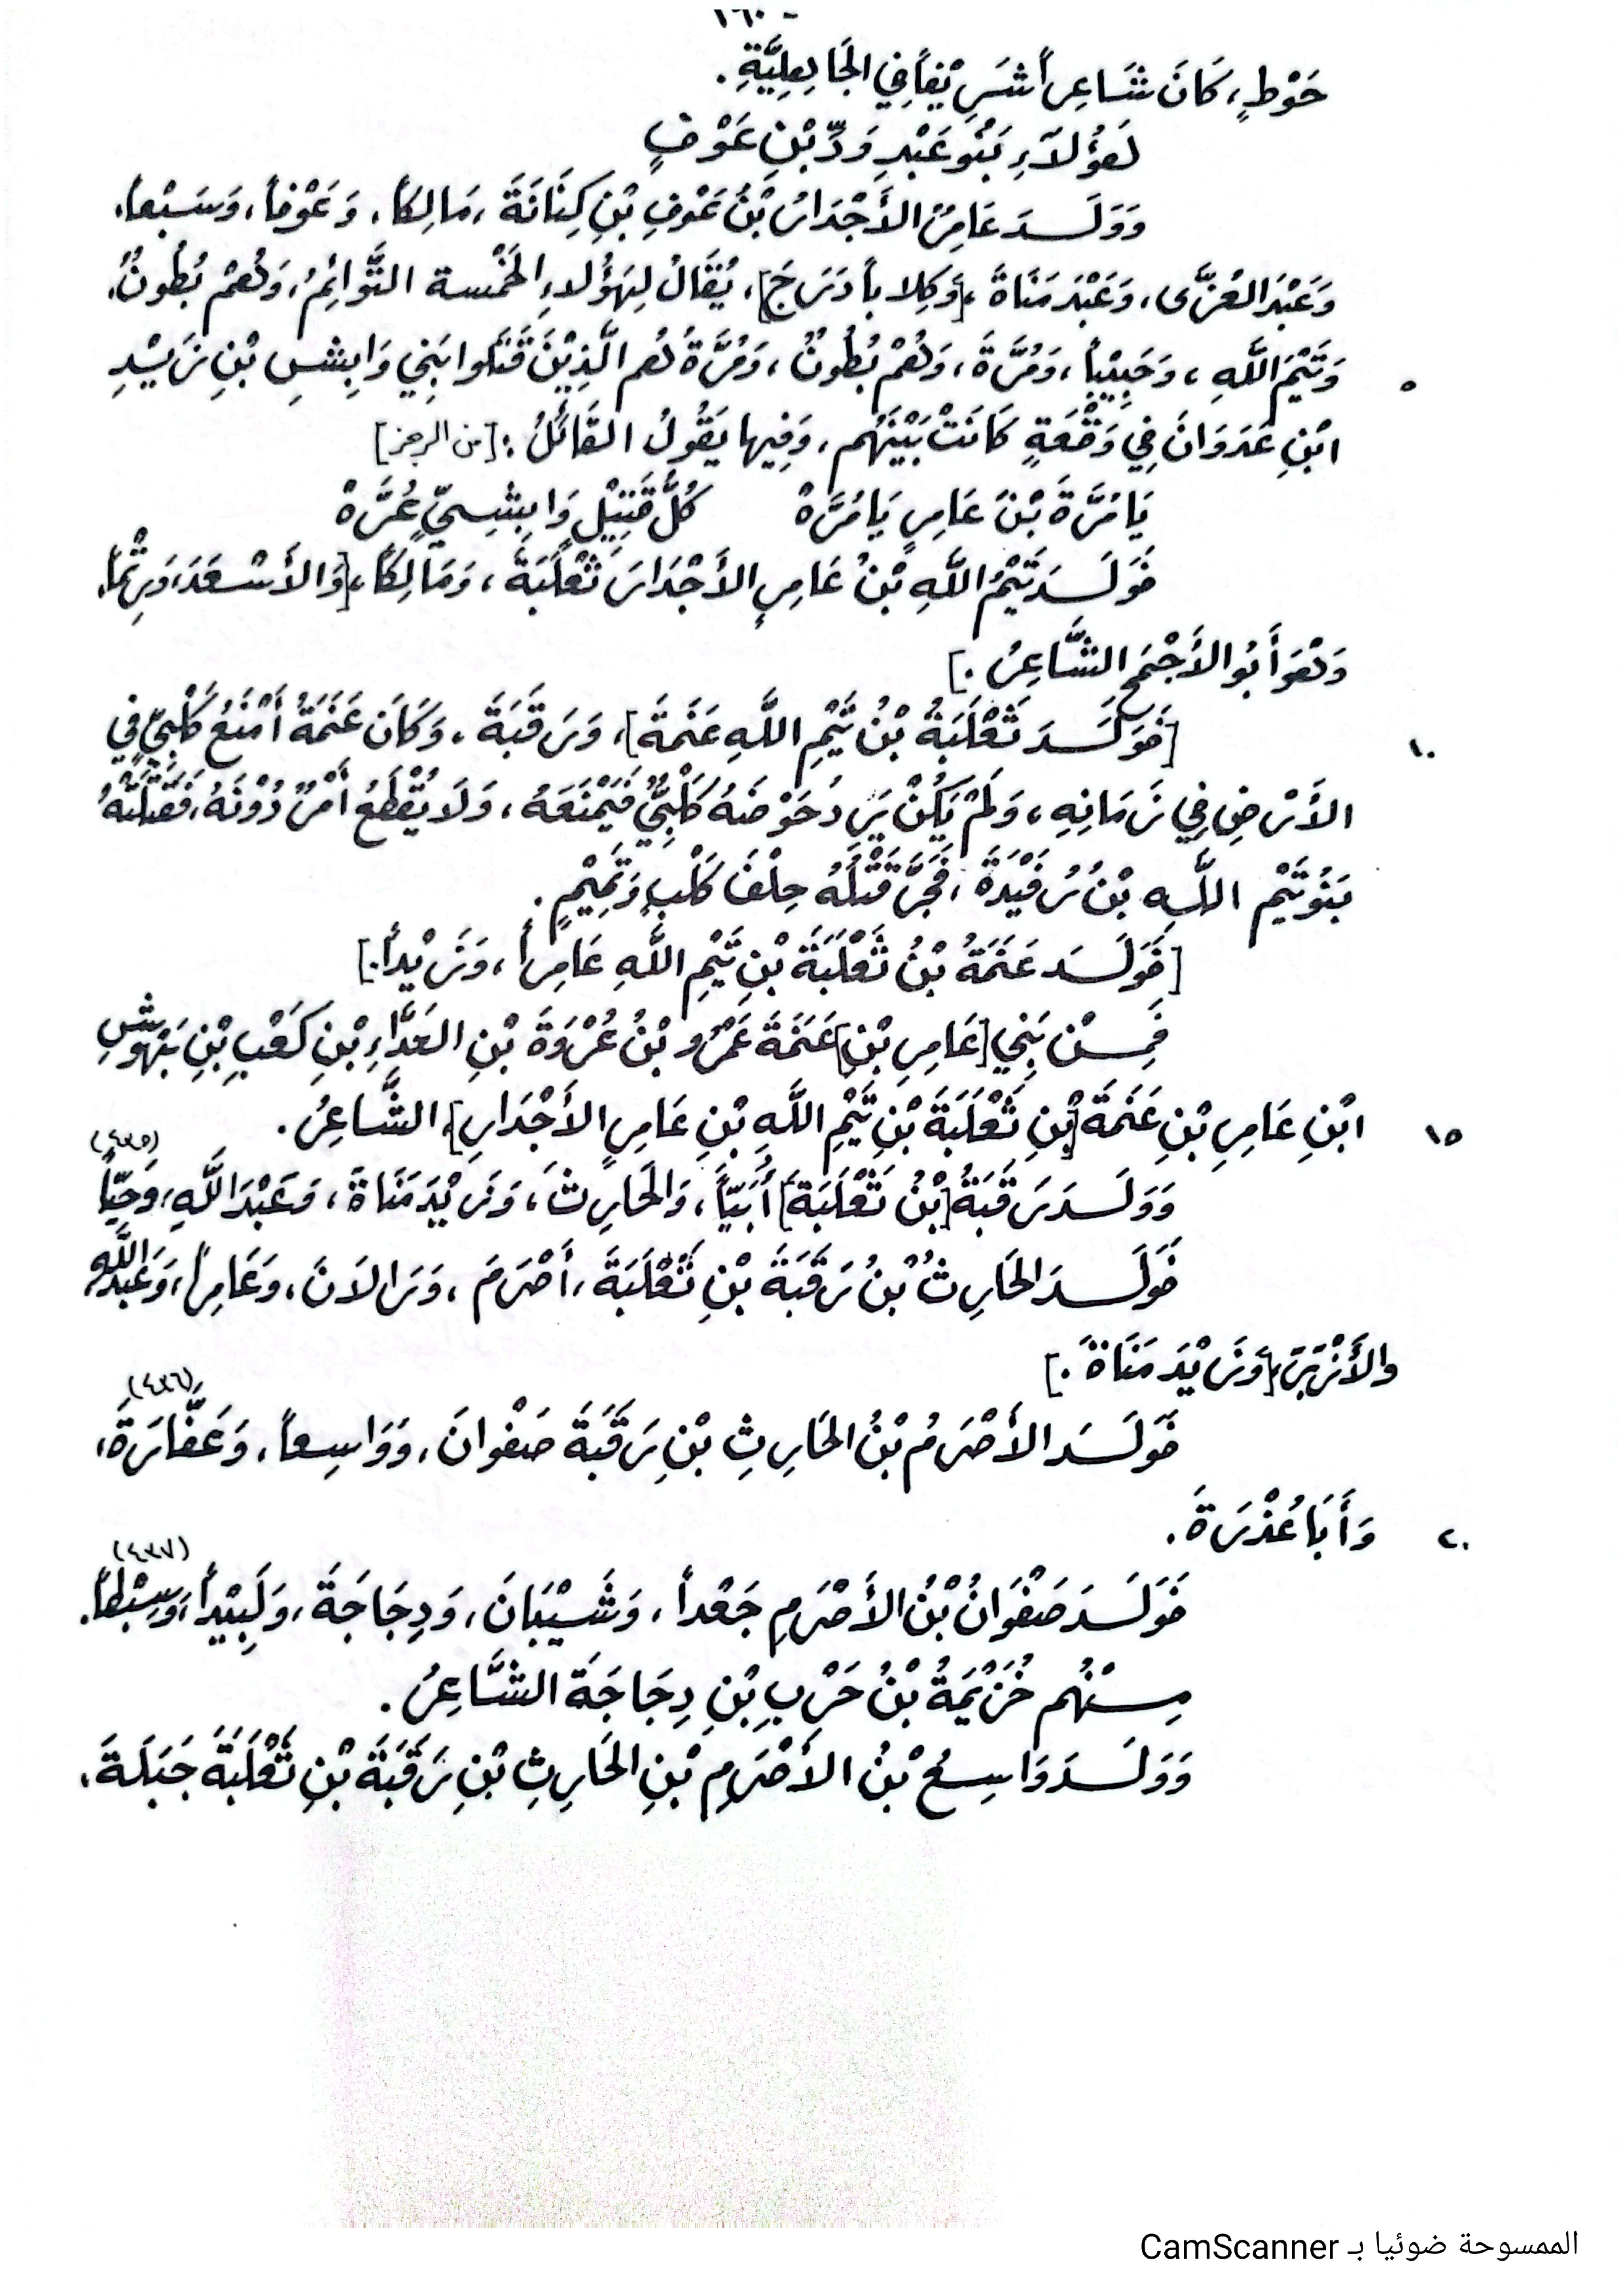 - ٦٦٠
حَوْطٍ، كَانَ شَاعِراً شَرِيْفاً فِي الجَاهِلِيَّةِ.
هَؤُلَاءِ بَنُو عَبْدِ وَدِّ بْنِ عَوْفٍ
وَوَلَدَ عَامِرُ الأَجْدَارُ بْنُ عَوْفِ بْنِ كِنَانَةَ، مَالِكاً، وَعَوْفاً، وَسَبْعاً،
وَعَبْدَ العُزَّى، وَعَبْدَ مَنَاةَ، [وَكِلاباً دَرَجَ]، يُقَالُ لِهَؤُلاءِ الخَمْسة التَّوائِمُ، وَهُمْ بُطُونٌ،
٥ وَتَيْمَ اللَّهِ، وَحَبِيْباً، وَمُرَّةَ، وَهُمْ بُطُونٌ، وَمُرَّةُ هُم الَّذِيْنَ قَتَلُوا بَنِي وَابِشِ بْنِ زَيْدِ
ابْنِ عَدَوَانَ فِي وَقْعَةٍ كَانَتْ بَيْنَهُم، وَفِيها يَقُولُ القَائِلُ: [من الرجز]
يَا مُرَّةَ بْنَ عَامِرٍ يَا مُرَّهْ كُلُّ قَتِيْلٍ وَابِشِيٍّ عُرَّهْ
فَوَلَدَ تَيْمُ اللَّهِ بْنُ عَامِرٍ الأَجْدَارِ ثَعْلَبَةَ، وَمَالِكاً، [وَالأَسْعَدَ، وَرِثْماً،
وَهُوَ أَبُو الأَجْمَحِ الشَّاعِرُ.]
١٠ [فَوَلَدَ ثَعْلَبَةُ بْنُ تَيْمِ اللَّهِ عَنَمَةَ]، وَرَقَبَةَ، وَكَانَ عَنَمَةُ أَمْنَعَ كَلْبِيٍّ فِي
الأَرْضِ فِي زَمَانِهِ، وَلَمْ يَكُنْ يَرِدُ حَوْضَهُ كَلْبِيٌّ فَيَمْنَعَهُ، وَلَا يُقْطَعُ أَمْرٌ دُوْنَهُ، فَقَتَلَتْهُ
بَنُو تَيْمِ اللَّهِ بْنُ رُفَيْدَةَ، فَجَرَّ قَتْلُهُ حِلْفَ كَلْبٍ وَتَمِيْمٍ.
[فَوَلَدَ عَنَمَةُ بْنُ ثَعْلَبَةَ بْنِ تَيْمِ اللَّهِ عَامِراً، وَزَيْداً.]
فَمِنْ بَنِي [عَامِرِ بْنِ] عَنَمَةَ عَمْرُو بْنُ عُرْوَةَ بْنِ العَدَّاءِ بْنِ كَعْبِ بْنِ بَهْوَشِ
١٥ ابْنِ عَامِرِ بْنِ عَنَمَةَ [بْنِ ثَعْلَبَةَ بْنِ تَيْمِ اللَّهِ بْنِ عَامِرٍ الأَجْدَارِ]، الشَّاعِرُ.
(٤٣٥)
وَوَلَدَ رَقَبَةُ [بْنُ ثَعْلَبَةَ] أُبَيّاً، وَالحَارِثَ، وَزَيْدَ مَنَاةَ، وَعَبْدَ اللَّهِ، وَحَيّاً
فَوَلَدَ الحَارِثُ بْنُ رَقَبَةَ بْنِ ثَعْلَبَةَ، أَصْرَمَ، وَرَالَانَ، وَعَامِراً، وَعَبْدَ اللَّهِ،
والأَزْبَرَ، [وَزَيْدَ مَنَاةَ.]
(٤٣٦)
فَوَلَدَ الأَصْرَمُ بْنُ الحَارِثِ بْنِ رَقَبَةَ صَفْوانَ، وَوَاسِعاً، وَعَفَّارَةَ،
٢٠ وَأَبَا عُذْرَةَ.
(٤٣٧)
فَوَلَدَ صَفْوَانُ بْنُ الأَصْرَمِ جَعْداً، وَشَيْبَانَ، وَدِجَاجَةَ، وَلَبِيْداً، وَسِبْطاً.
مِنْهُم خُزَيْمَةُ بْنُ حَرْبِ بْنِ دِجَاجَةَ الشَّاعِرُ.
وَوَلَدَ وَاسِعُ بْنُ الأَصْرَمِ بْنِ الحَارِثِ بْنِ رَقَبَةَ بْنِ ثَعْلَبَةَ جَبَلَةَ،
الممسوحة ضوئيا بـ CamScanner